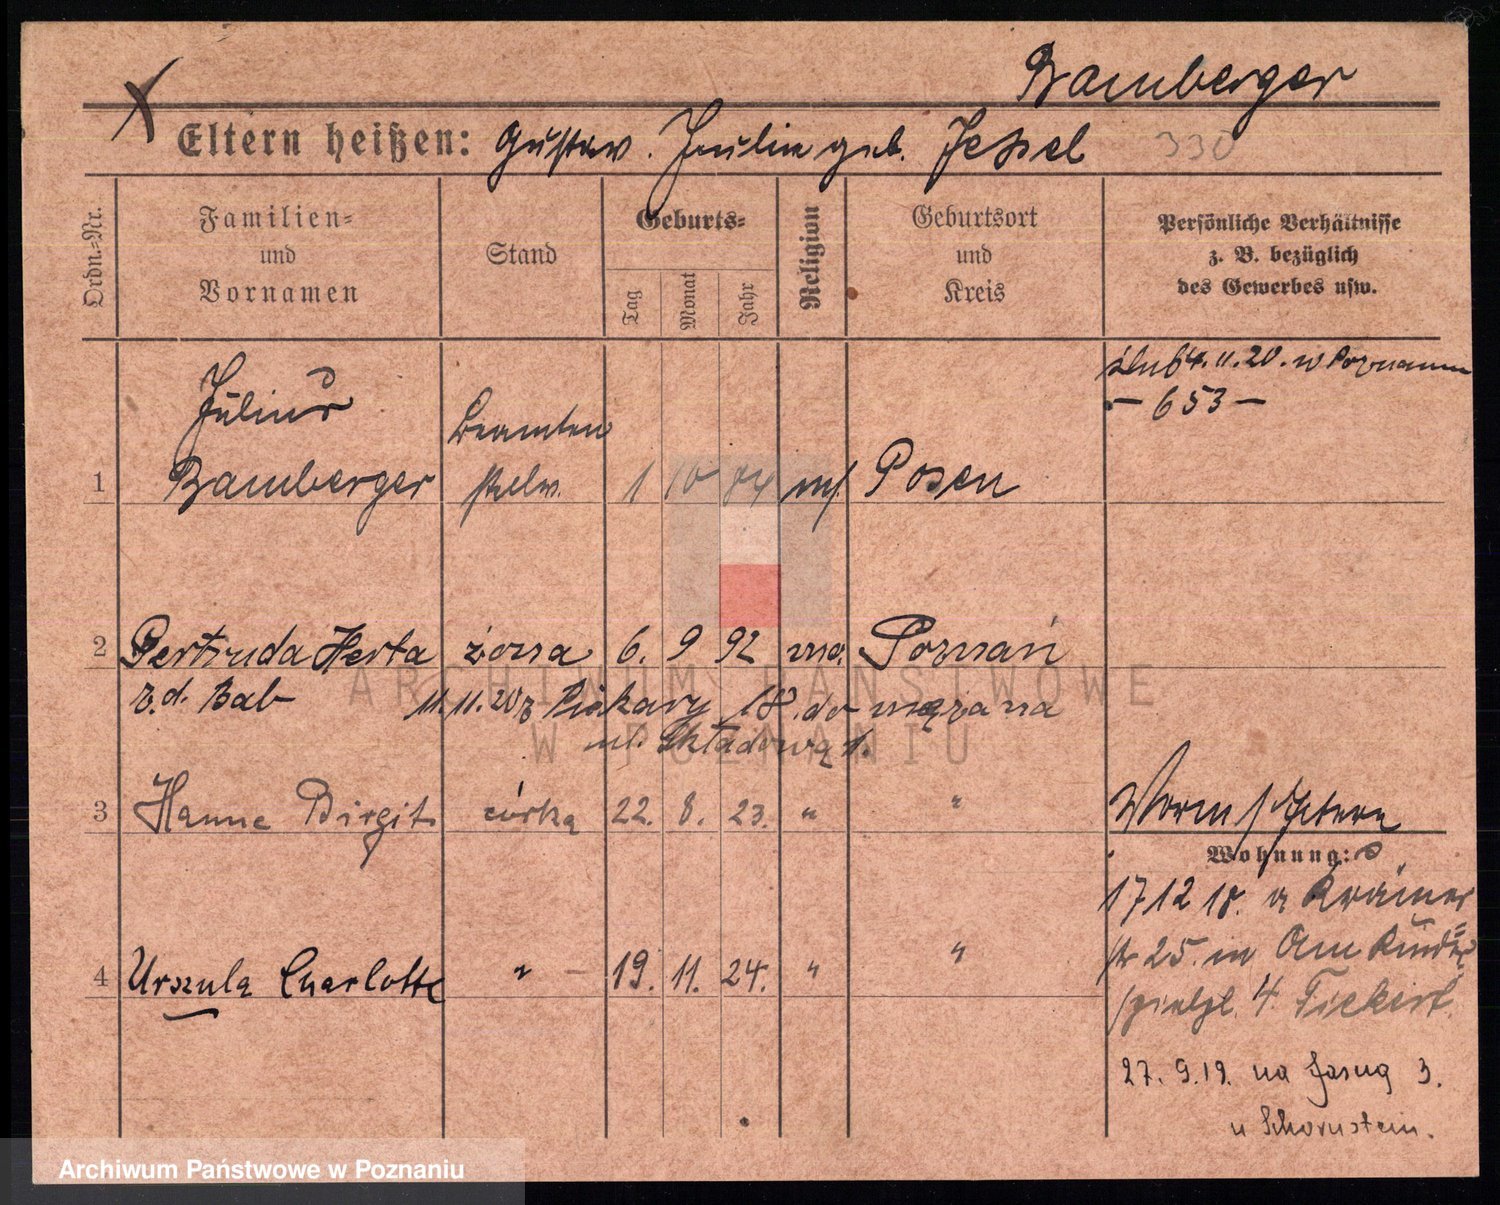 Bamberger
Eltern heißen: Gustav. Julie geb. Jessel 330
Ordn.=Nr.
Familien=
und
Vornamen
Stand
Geburts=
Tag
Monat
Jahr
Religion
Geburtsort
und
Kreis
Persönliche Verhältnisse
z. B. bezüglich
des Gewerbes usw.
ślub 4.11.20. w Poznaniu
– 653 –
Julius
Bamberger
1 1 10 84 Posen
2 Gertruda Herta żona 6. 9 92 Poznań
z.d. Bab 11.11.20 z Piekary 18. do męża na
ul. Składową
3 Hanne Birgit córka 22. 8. 23. " "
4 Urszula Charlotte " – 19. 11. 24. " "
Wohnung:
17 12 18. a Krämer
str 25. in Am Kinder=
4 Tickert.
27. 9.19. na Jasną 3.
u Schornstein.
ARCHIWUM PAŃSTWOWE
W POZNANIU
Archiwum Państwowe w Poznaniu